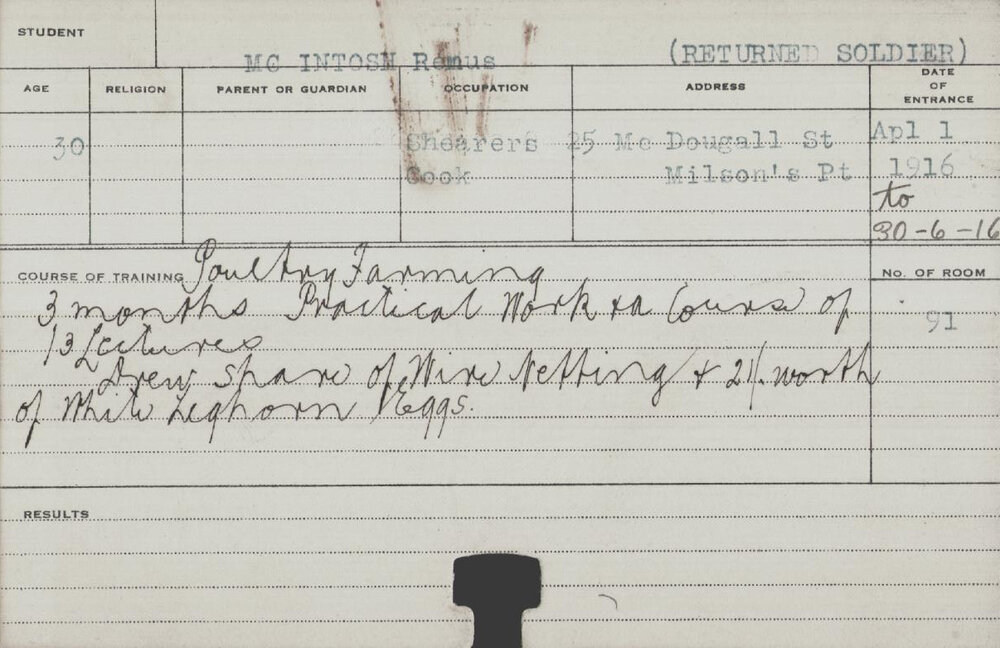 STUDENT
MC INTOSH Remus (RETURNED SOLDIER)
AGE RELIGION PARENT OR GUARDIAN OCCUPATION ADDRESS DATE OF ENTRANCE
30 Shearers 25 Mc Dougall St Apl 1
Cook Milson's Pt 1916
to
30-6-16
COURSE OF TRAINING Poultry Farming No. OF ROOM
3 months Practical Work & a Course of
91
13 Lectures
Drew share of Wire Netting & 21/. worth
of White Leghorn Eggs.
RESULTS